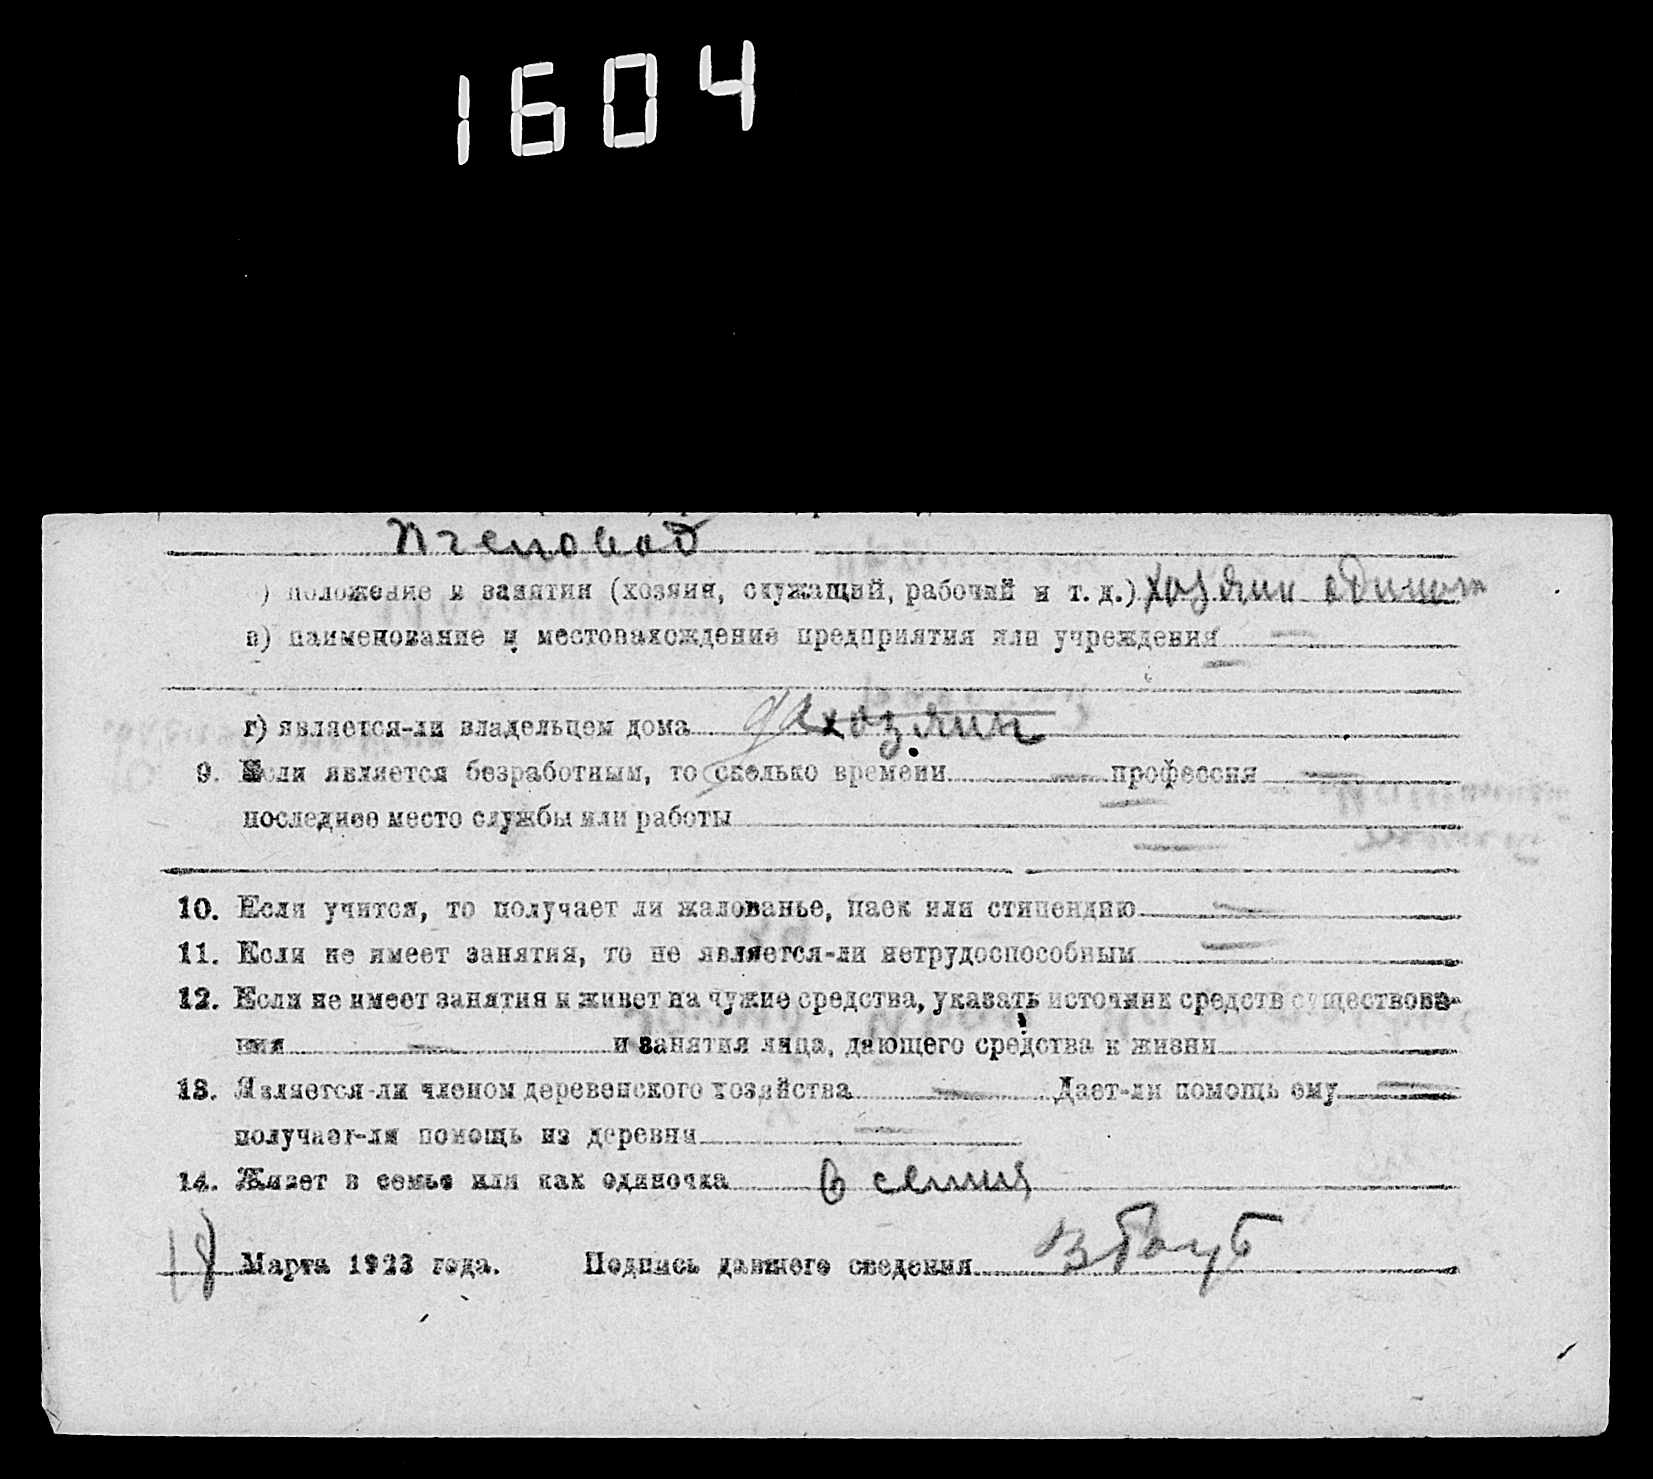 1604
пчеловод
) положение в занятии (хозяин, служащий, рабочий и т. д.) хозяин одиноч
в) наименование и местонахождение предприятия или учреждения —
г) является-ли владельцем дома да хозяин
9. Если является безработным, то сколько времени — профессия —
последнее место службы или работы —
10. Если учится, то получает ли жалованье, паек или стипендию —
11. Если не имеет занятия, то не является-ли нетрудоспособным —
12. Если не имеет занятия и живет на чужие средства, указать источник средств существова-
ния — и занятия лица, дающего средства к жизни
13. Является-ли членом деревенского хозяйства — Дает-ли помощь ему —
получает-ли помощь из деревни —
14. Живет в семье или как одиночка в семия
18 Марта 1923 года. Подпись давшего сведения